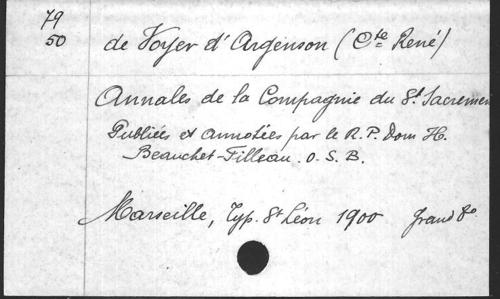 79
50
de Voyer d'Argenson (Cte René)
Annales de la Compagnie du St. Sacremen
Publiées et annotées par le R. P. Dom H.
Beauchet-Filleau. O. S. B.
Marseille, Typ. St Léon 1900 grand 8o